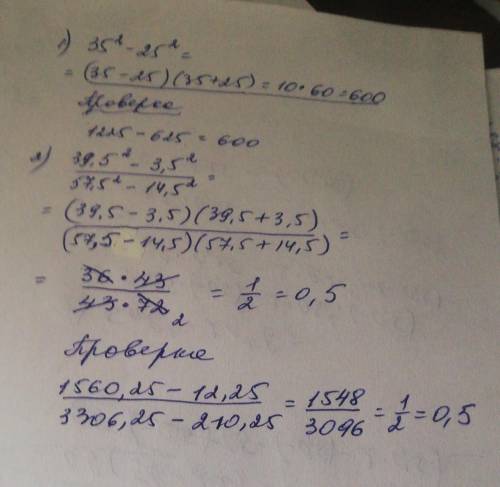 1) 35² - 25² =
= (35 - 25)(35+25) = 10 · 60 = 600
Проверка
1225 - 625 = 600
2) 39,5² - 3,5²
57,5² - 14,5² =
= (39,5 - 3,5)(39,5 + 3,5)
(57,5 - 14,5)(57,5 + 14,5) =
= 36 · 43
43 · 72 2 = 1/2 = 0,5
Проверка
1560,25 - 12,25
3306,25 - 210,25 = 1548/3096 = 1/2 = 0,5